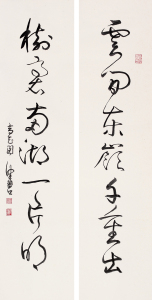 雲間東嶺千重出
樹裏南湖一片明